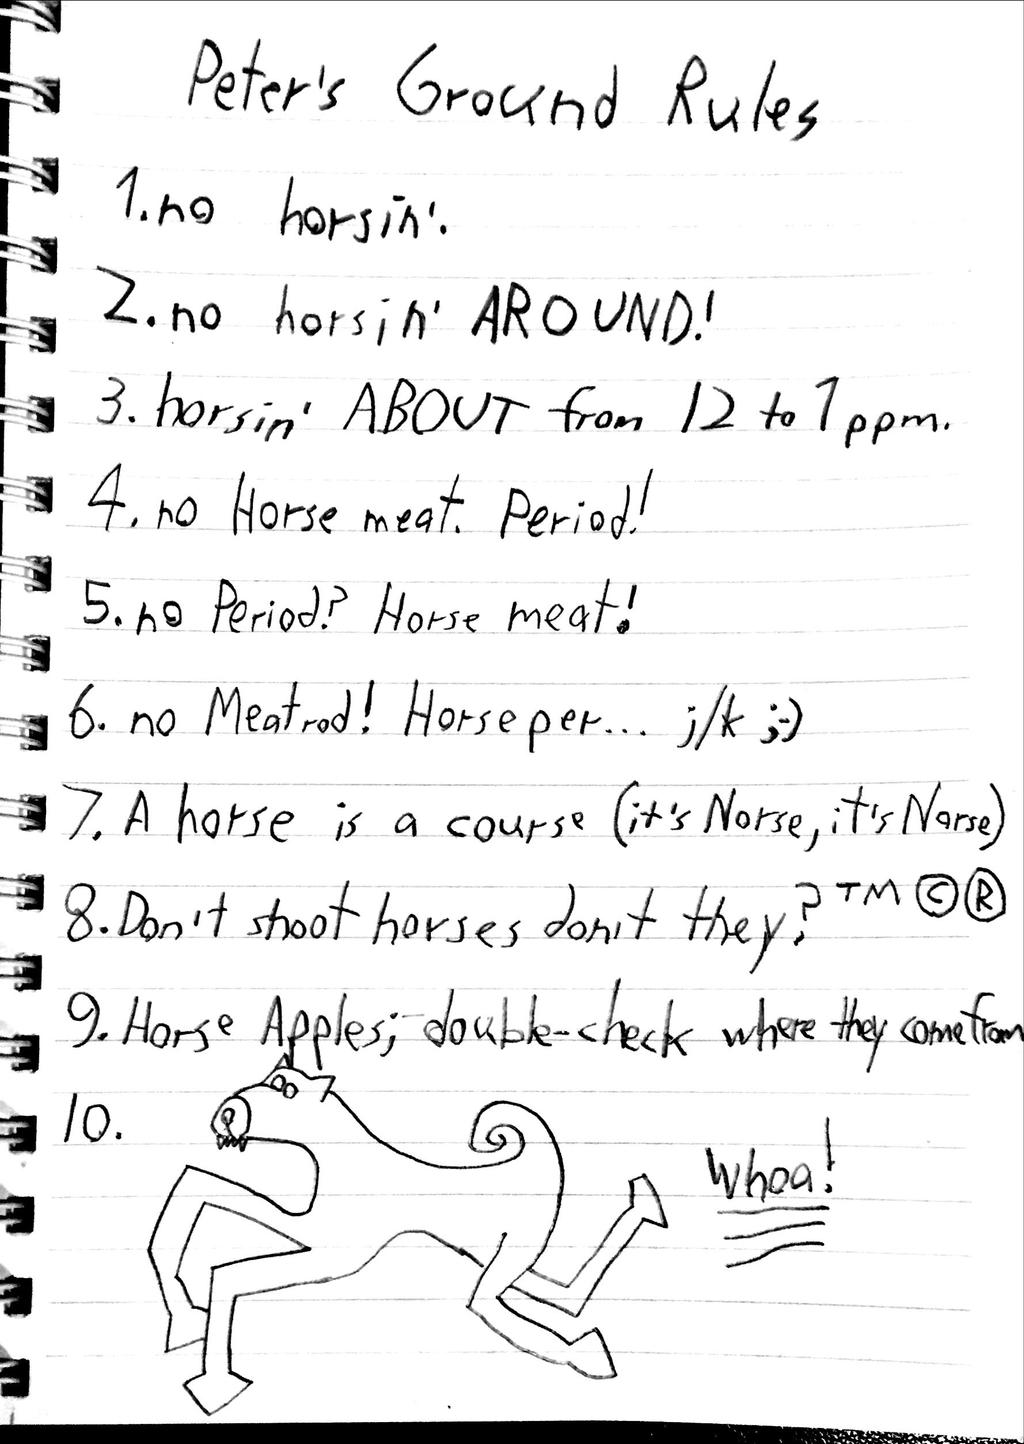 Peter's Ground Rules
1. no horsin'.
2. no horsin' AROUND!
3. horsin' ABOUT from 12 to 1ppm.
4. no Horse meat. Period!
5. no Period? Horse meat!
6. no Meatrod! Horseper... j/k ;-)
7. A horse is a course (it's Norse, it's Norse)
8. Don't shoot horses don't they? TM © ®
9. Horse Apples; double-check where they come from
10.
Whoa!